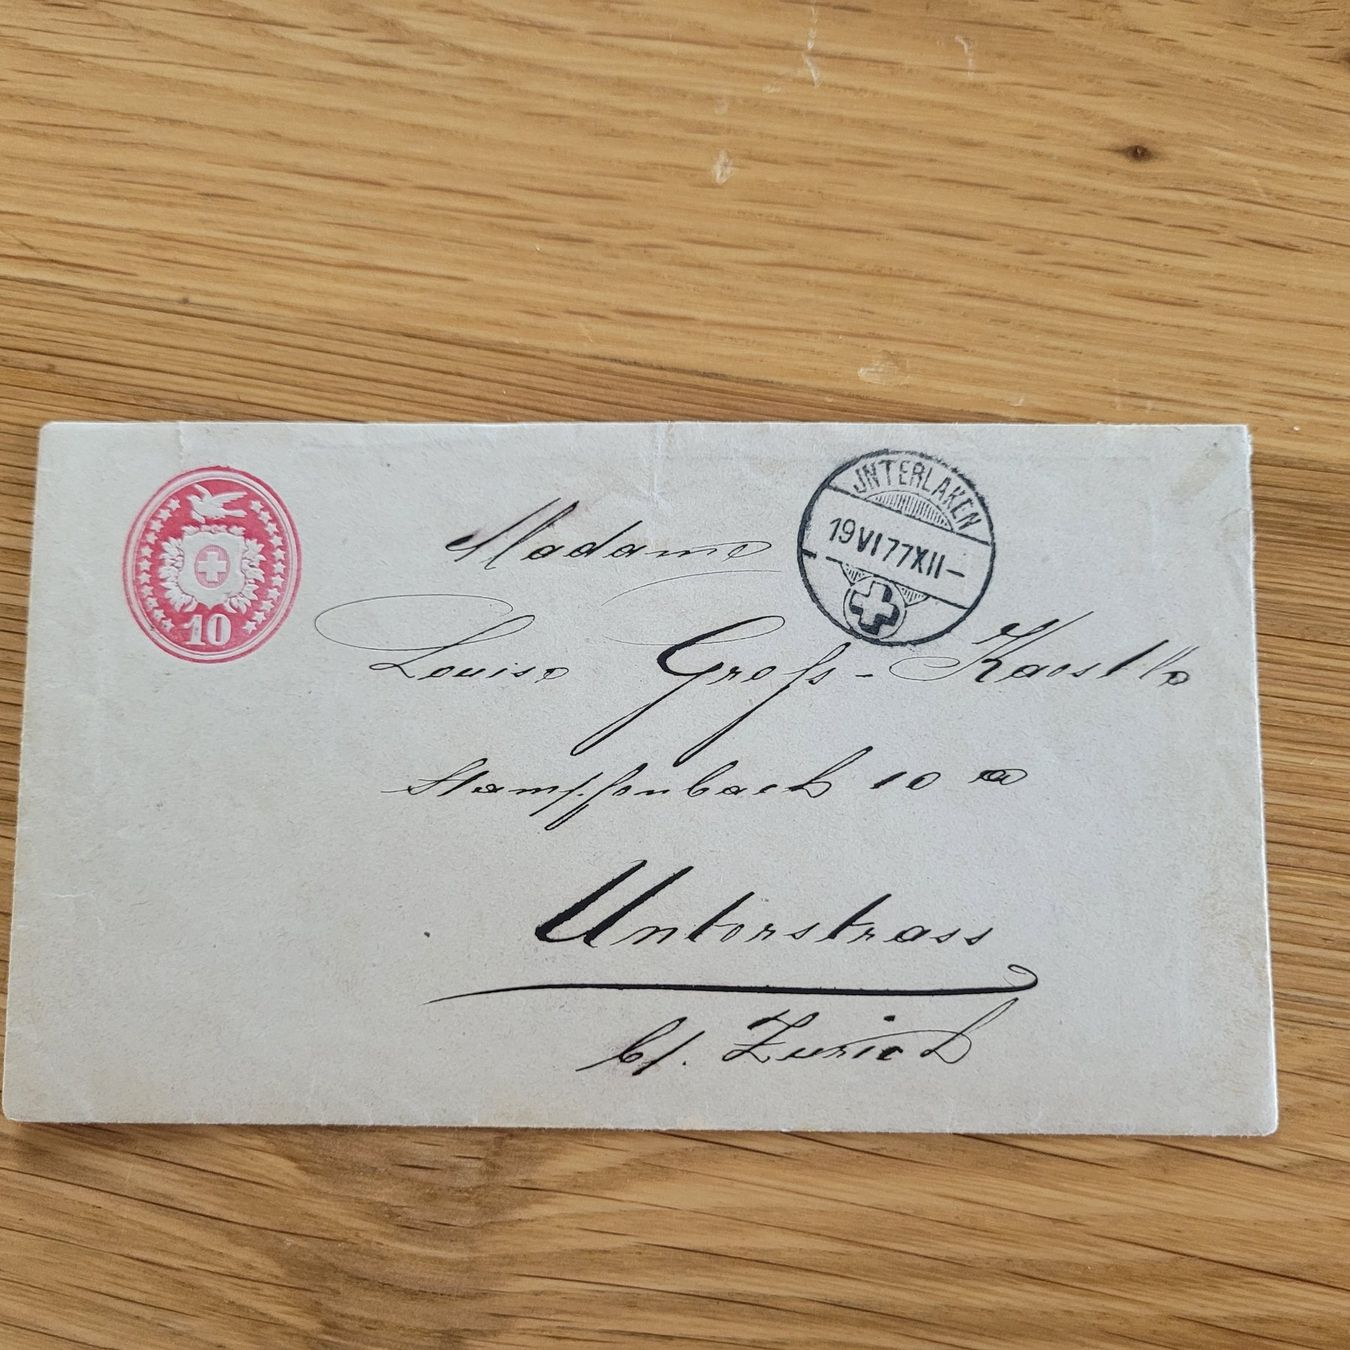 10
JNTERLAKEN
19 VI 77 XII–
Madame
Louise Groſs-
Stampfenbach 10 a
Unterstrass
b/. Zürich